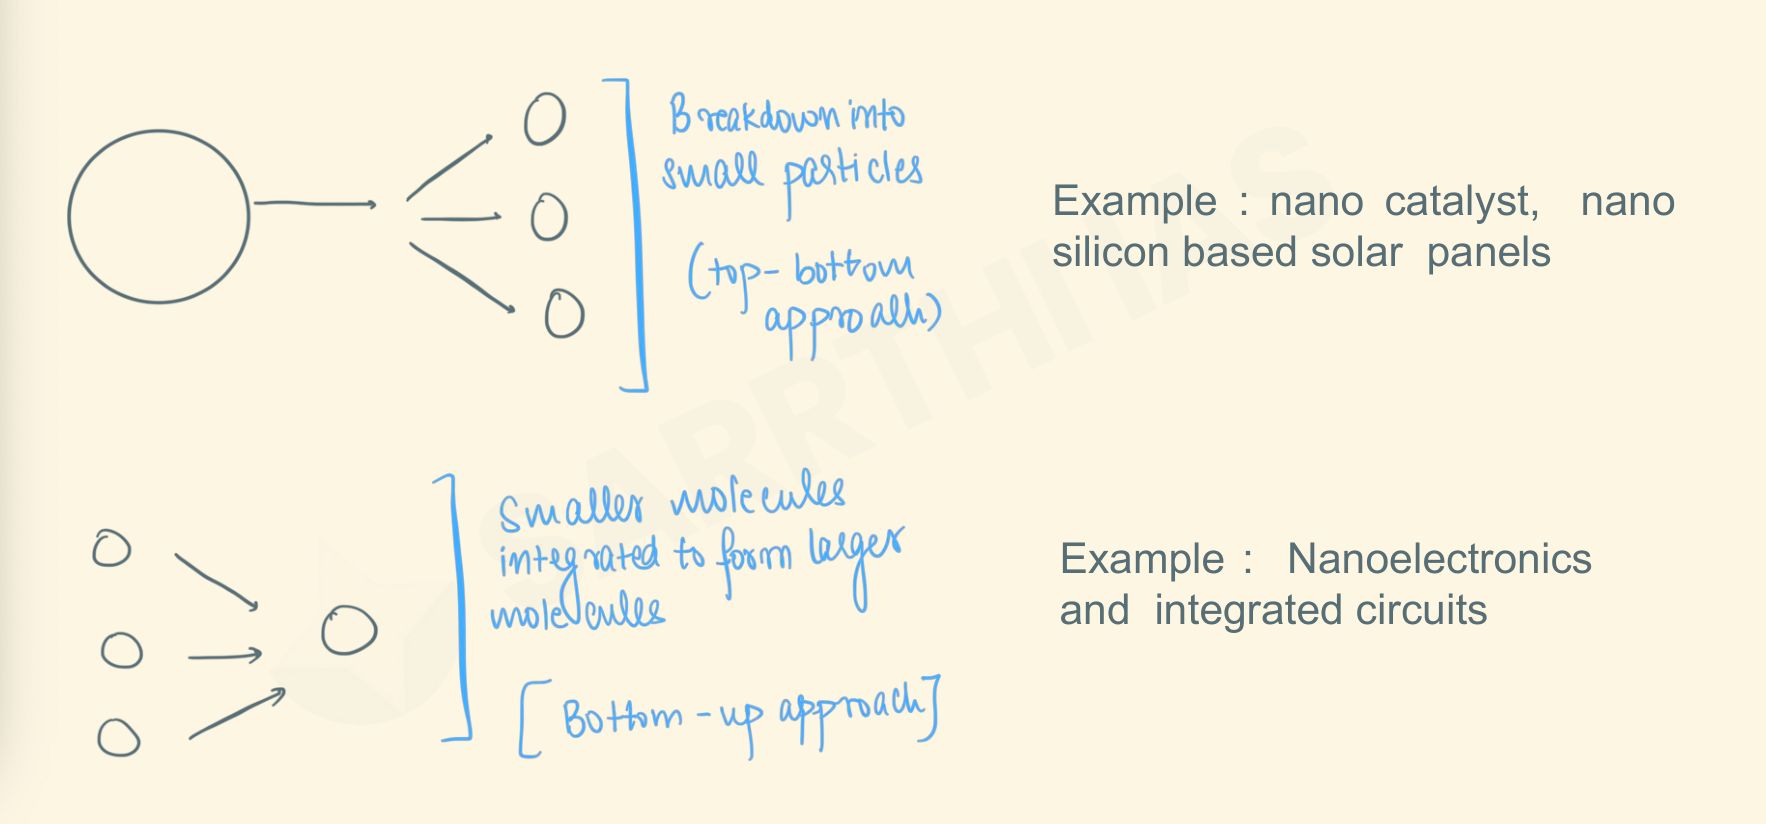 Breakdown into
small particles
(top-bottom
approach)
Example : nano catalyst, nano
silicon based solar panels
SARRTHI IAS
Smaller molecules
integrated to form larger
molecules
[Bottom-up approach]
Example : Nanoelectronics
and integrated circuits